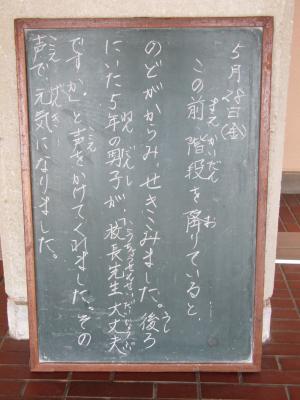 5月28日(金)
この前、階段を降りていると、
のどがからみ、せきこみました。後ろ
にいた5年の男子が、「校長先生大丈夫
ですか」と声をかけてくれました。その
声で元気になりました。